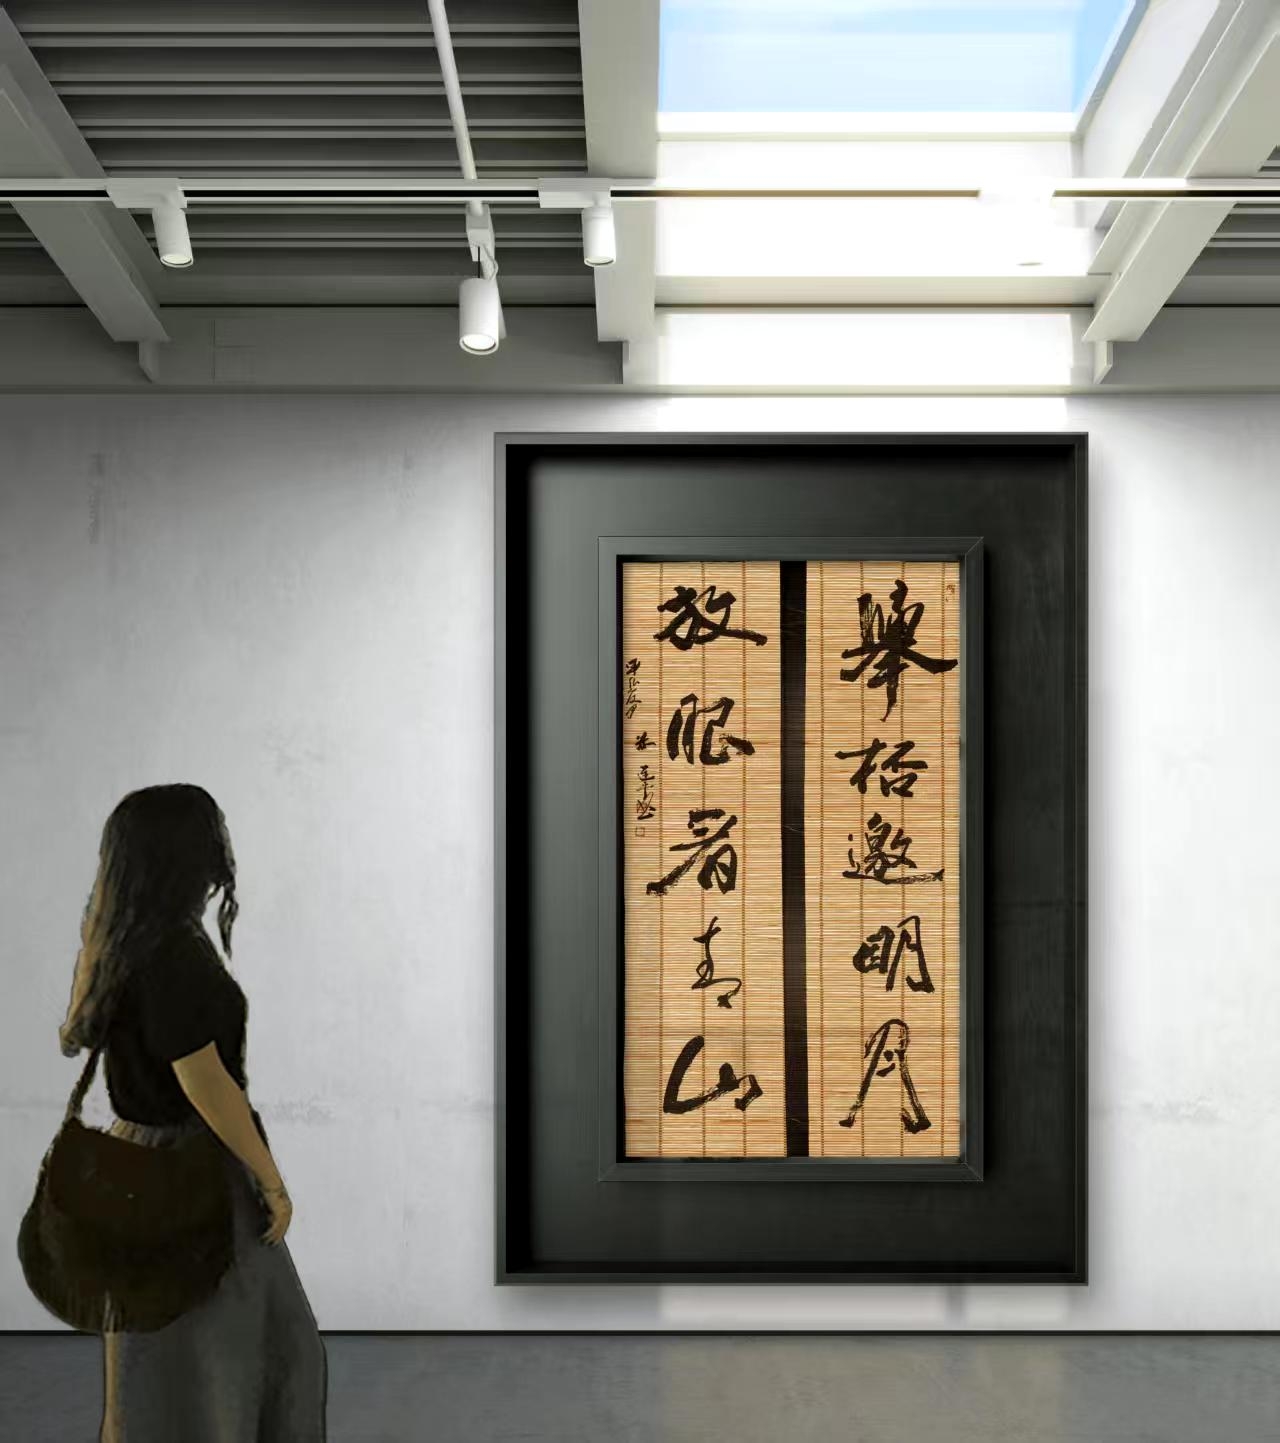 舉桮邀明月
放眼看青山